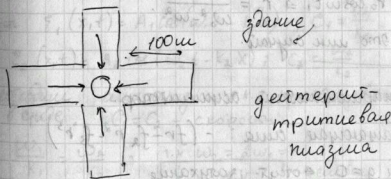 100м
здание,
дейтерий-
тритиевая
плазма